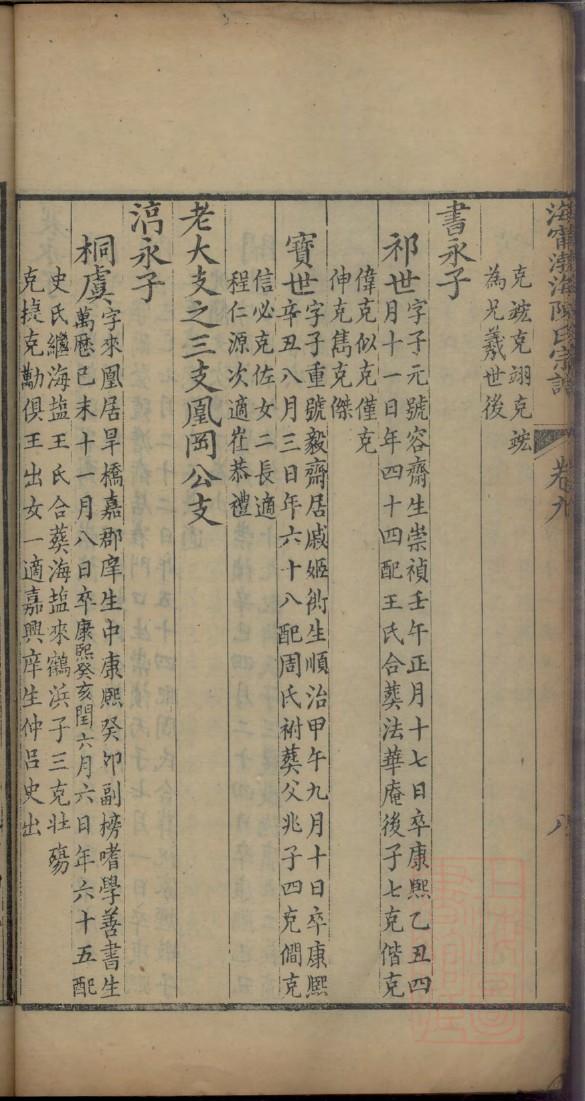 海甯渤海陳氏宗譜
卷九
八
克䟫克翊克䟫
為兄羲世後
書永子
祁世字子元號容齋生崇禎壬午正月十七日卒康熙乙丑四
月十一日年四十四配王氏合葬法華庵後子七克偕克
偉克似克僅克
伸克雋克傑
寶世字子重號毅齋居戚姬衖生順治甲午九月十日卒康熙
辛丑八月三日年六十八配周氏祔葬父兆子四克僩克
信必克佐女二長適
程仁源次適崔恭禮
老大支之三支凰岡公支
淓永子
桐虞字來凰居旱橋嘉郡庠生中康熙癸卯副榜嗜學善書生
萬曆己未十一月八日卒康熙癸亥閏六月六日年六十五配
史氏繼海盐王氏合葬海盐來鶴浜子三克壯殤
克捷克勤俱王出女一適嘉興庠生仲呂史出